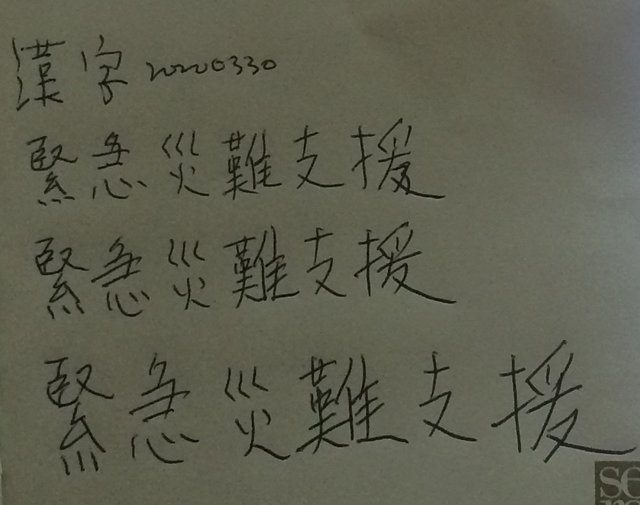 漢字 20200330
緊急災難支援
緊急災難支援
緊急災難支援
se